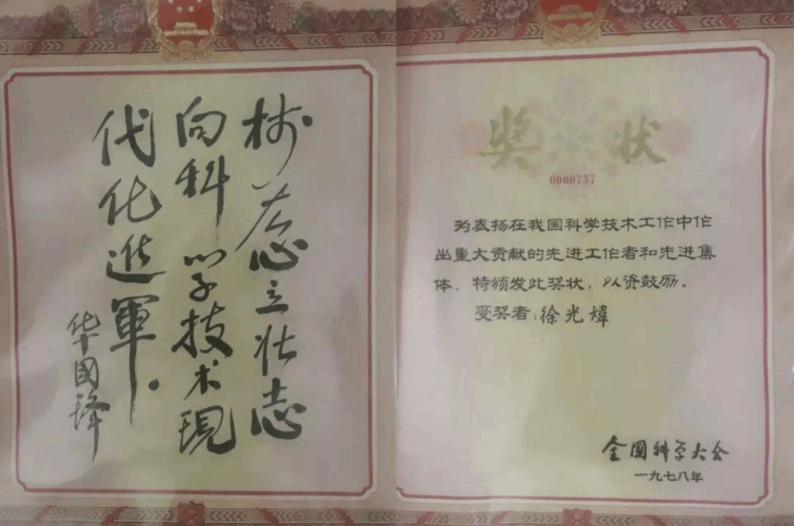 树雄心立壮志
向科学技术现
代化进軍。
华国锋
奖状
0000737
为表扬在我国科学技术工作中作
出重大贡献的先进工作者和先进集
体，特颁发此奖状，以资鼓励。
受奖者：徐光煒
全国科学大会
一九七八年